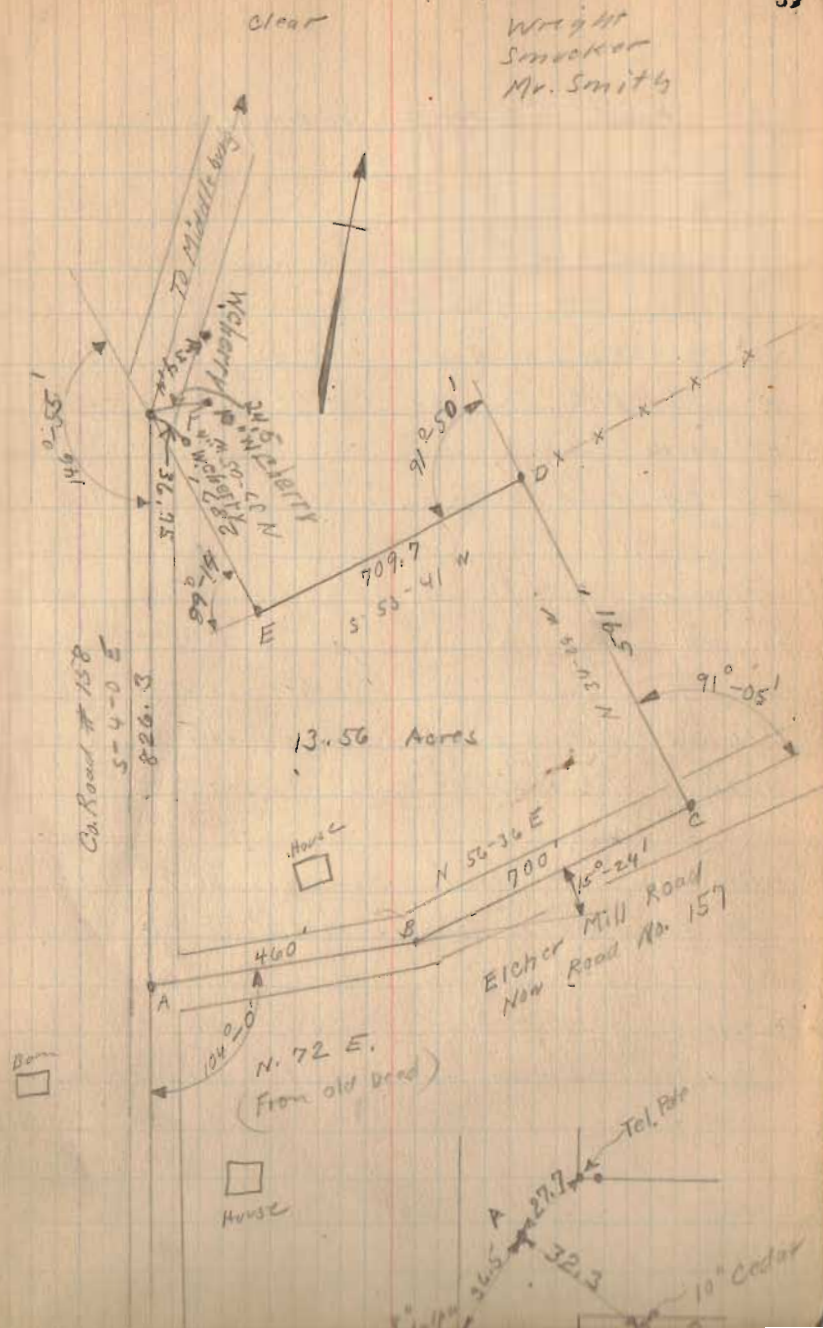 Clear
Wright
Smucker
Mr. Smith
To Middleburg
W.cherry
24.5
"W Cherry
W.cherry
282'
146°-55'
36.75
91°-50'
D
709.7
S 53-41 W
E
591'
N 34-29 W
91°-05'
Co. Road # 158
S-4-0 E
826.3
13.56 Acres
House
N 56-36 E
700'
C
15°-24'
B
460'
A
Elcher Mill Road
Now Road No. 157
104°-0'
N. 72 E.
(From old Deed)
Barn
House
Tel. Pole
A
27.7
36.5
32.3
10" Cedar